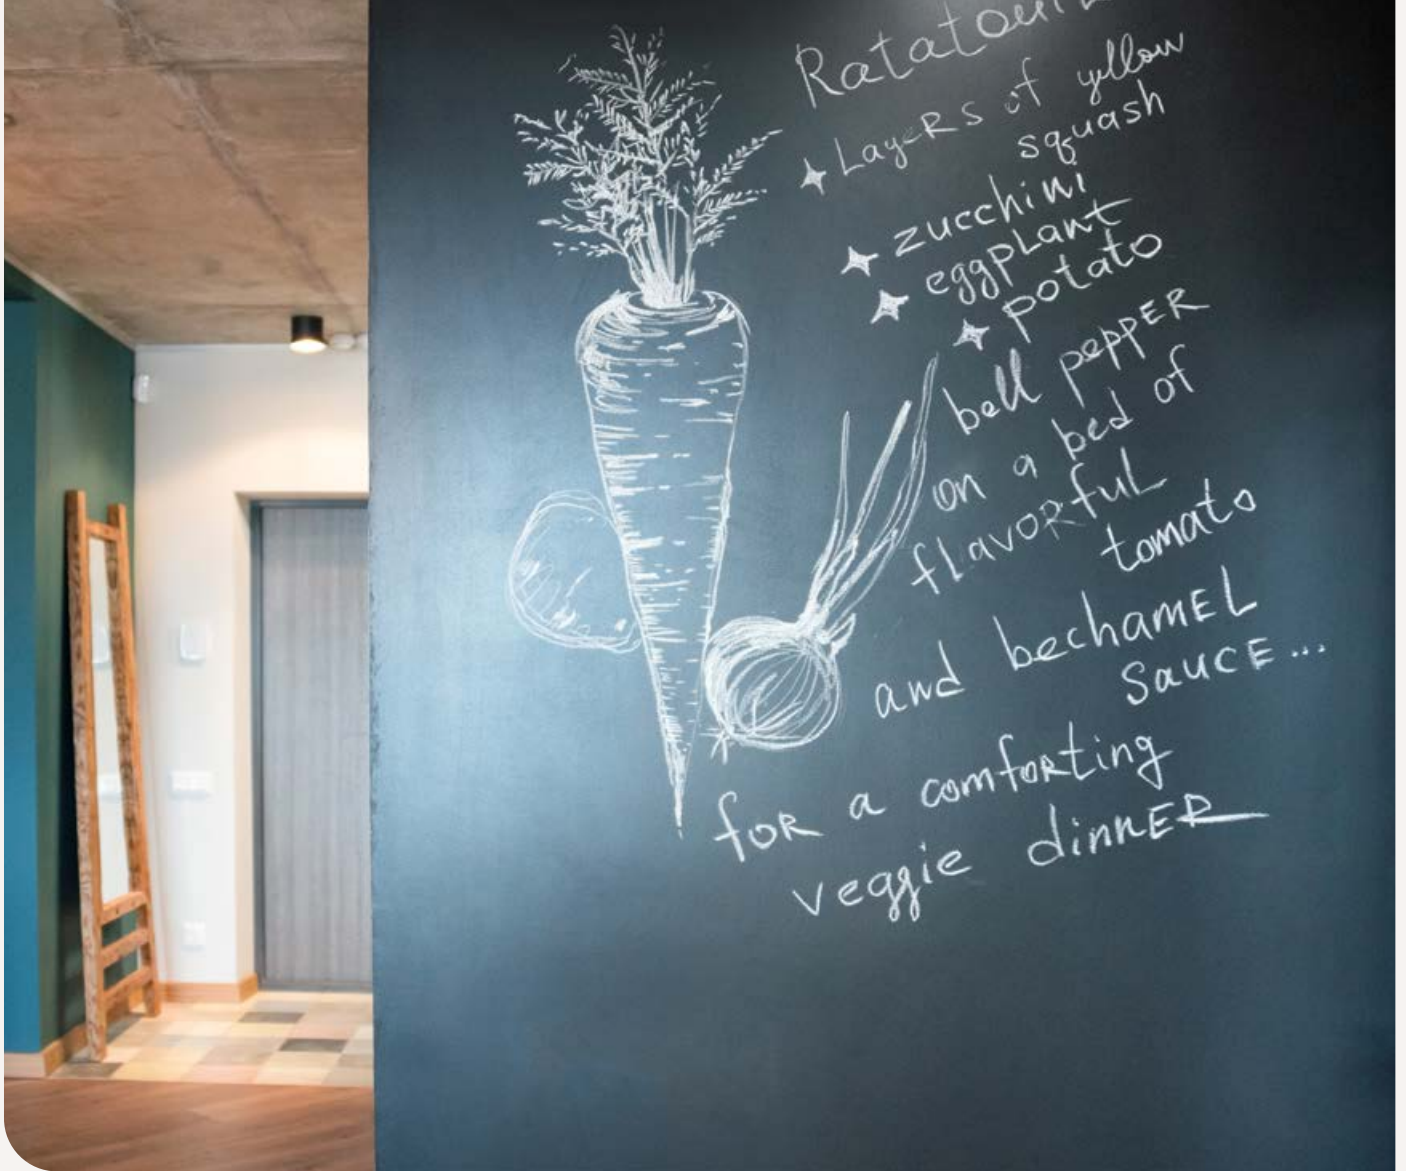 Ratatoui
LayeRs of yellow
squash
zucchini
eggpLant
potato
bell peppER
on a bed of
flavoRfuL
tomato
and bechamEL
SauCE...
foR a comfoRting
veggie dinnER